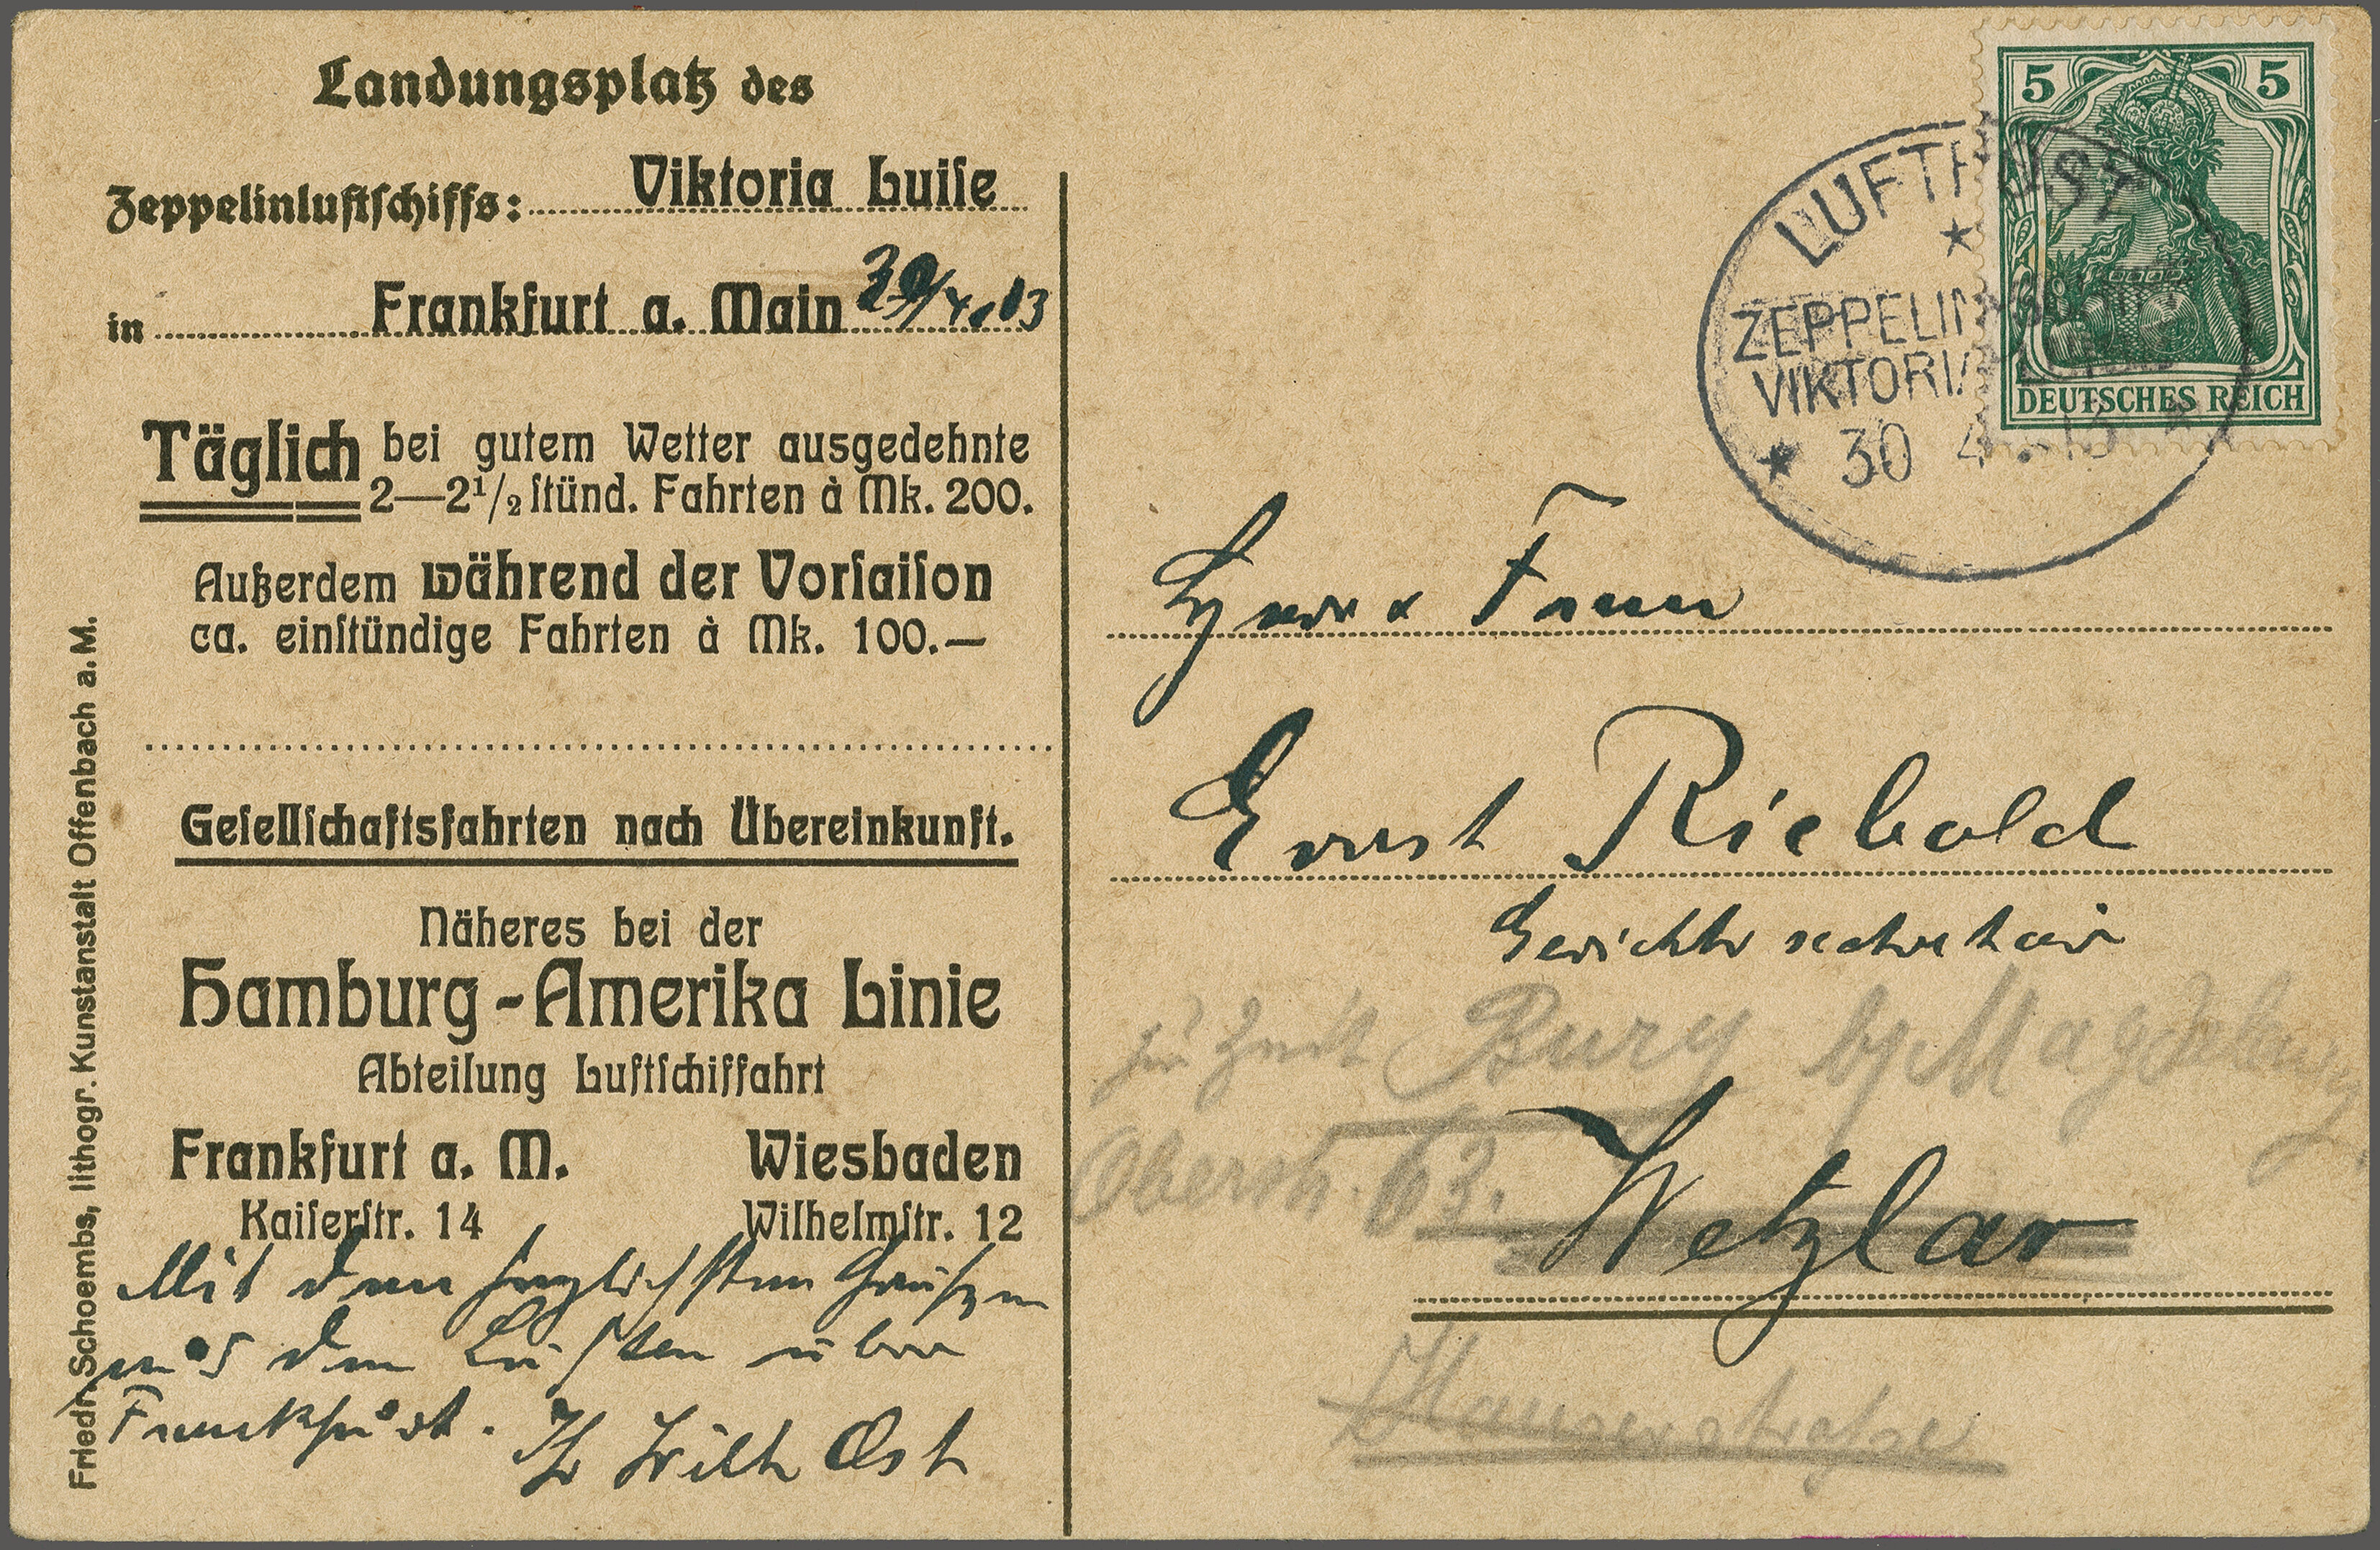 Landungsplatz des
Zeppelinluftschiffs: Viktoria Luise
in Frankfurt a. Main 30/4.13
Täglich bei gutem Wetter ausgedehnte
2—2½ stünd. Fahrten à Mk. 200.
Außerdem während der Vorsaison
ca. einstündige Fahrten à Mk. 100.—
Gesellschaftsfahrten nach Übereinkunft.
Näheres bei der
Hamburg-Amerika Linie
Abteilung Luftschiffahrt
Frankfurt a. M. Wiesbaden
Kaiserstr. 14 Wilhelmstr. 12
Mit den herzlichsten Grüßen
aus den Lüften über
Frankfurt. Ihr Wilh Ost
Friedr. Schoembs, lithogr. Kunstanstalt Offenbach a. M.
5 5
DEUTSCHES REICH
LUFTPOST
ZEPPELIN
VIKTORIA
30 4 . 13
Herr & Frau
Ernst Riebold
Gerichtssekretair
zu Zeit Burg b/ Magdeburg
Oberstr. 63.
Wetzlar
Hauserstraße